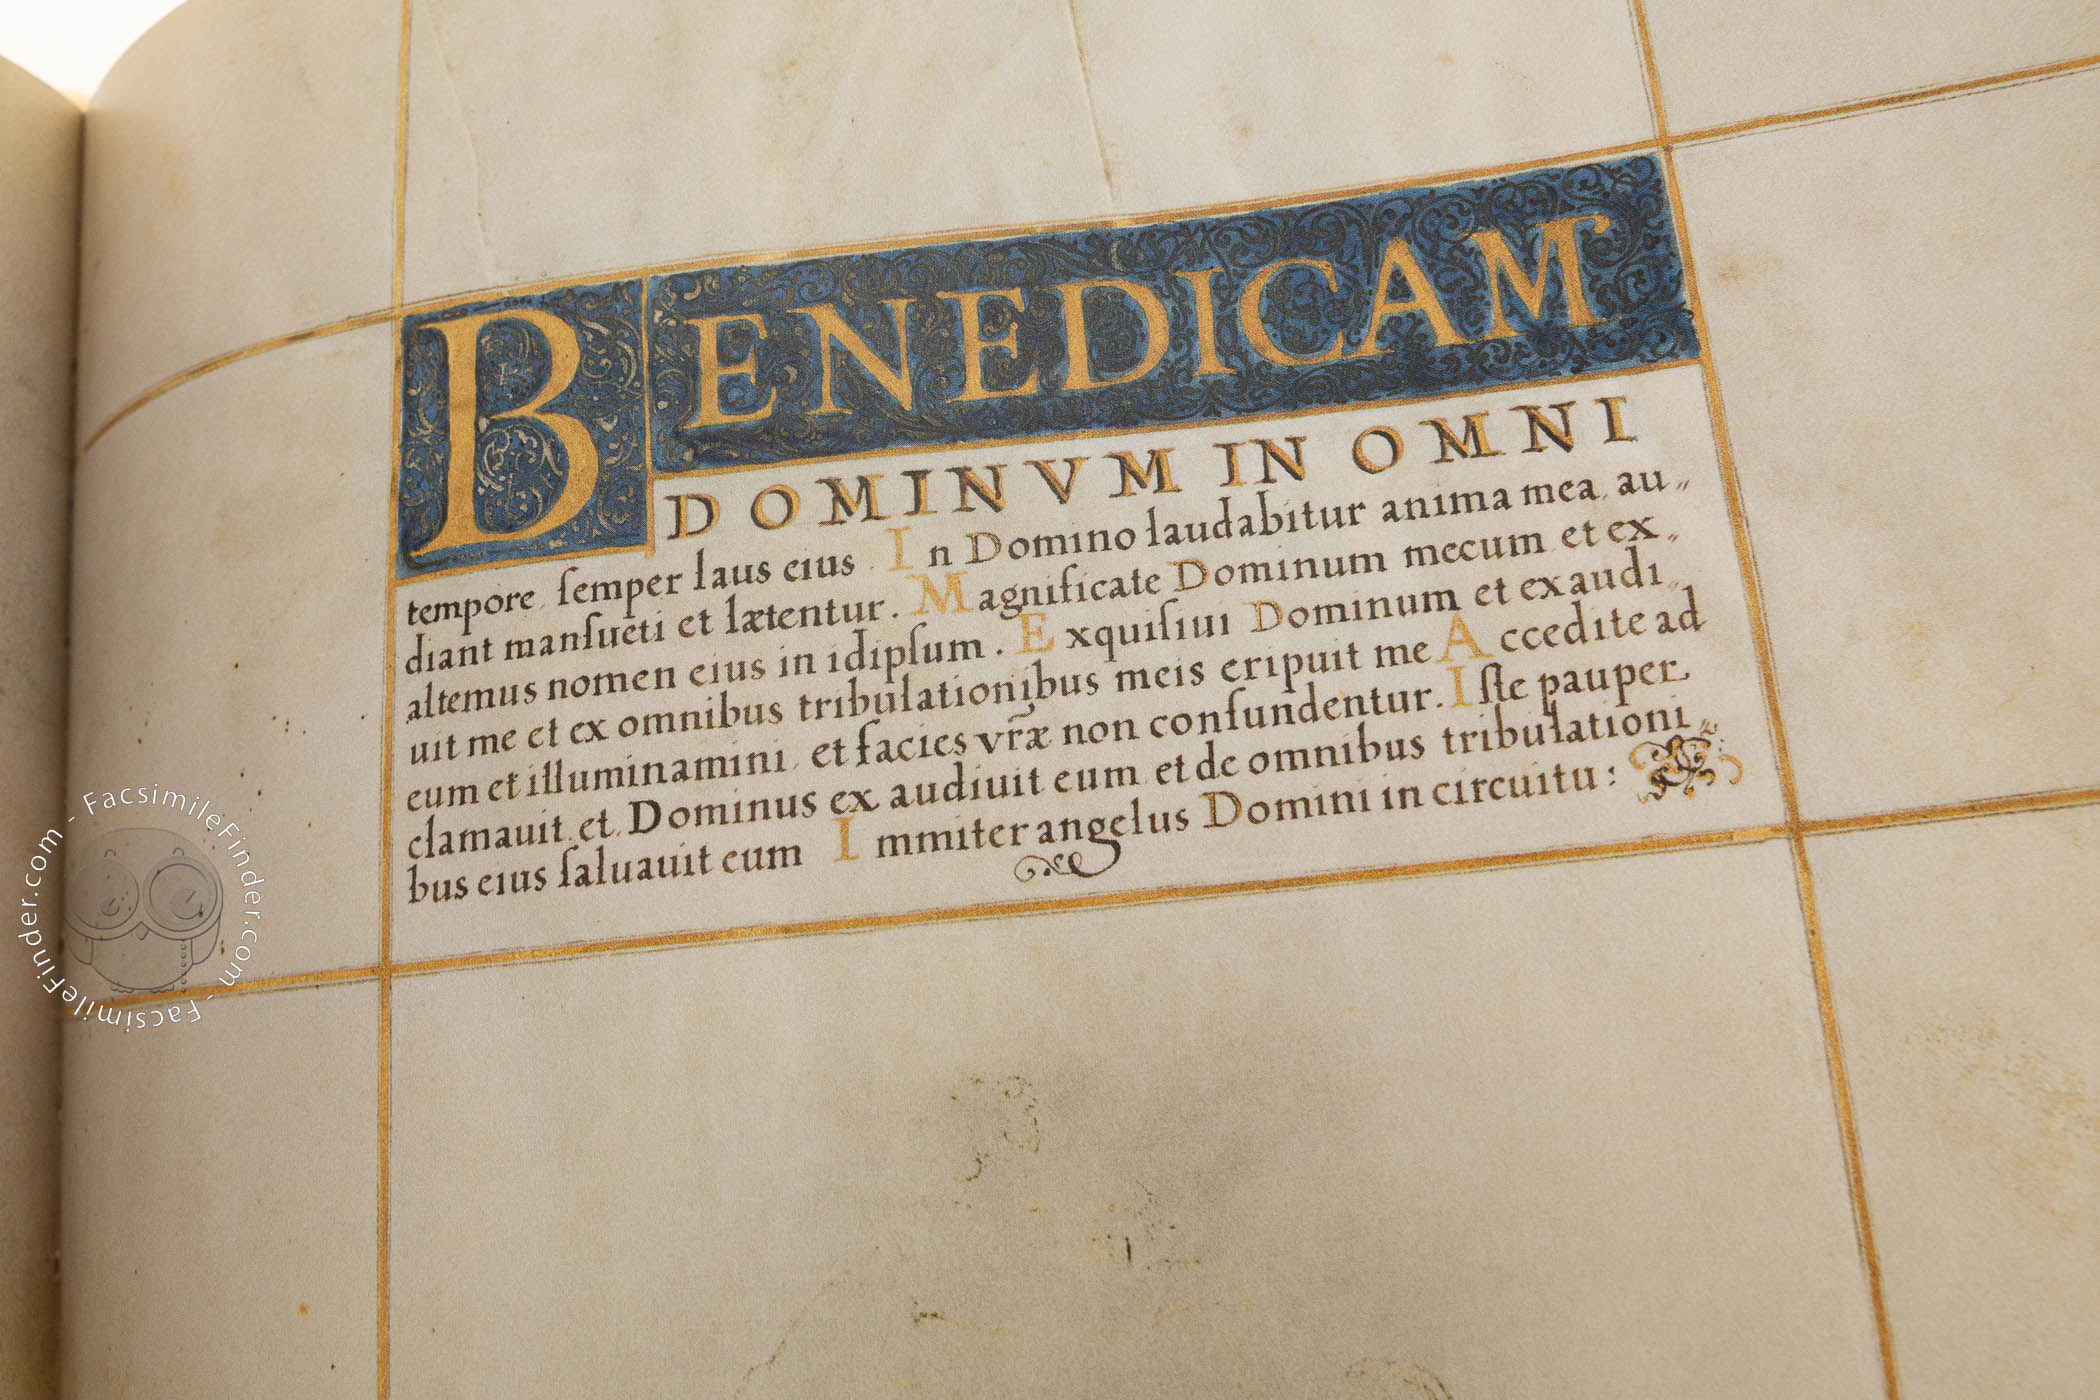 BENEDICAM
DOMINVM IN OMNI
tempore, ſemper laus eius. In Domino laudabitur anima mea, au〃
diant manſueti et lætentur. Magnificate Dominum mecum et ex〃
altemus nomen eius in idipſum. Exquiſiui Dominum et exaudi〃
uit me et ex omnibus tribulationibus meis eripuit me Accedite ad
eum et illuminamini, et facies vr̃æ non confundentur. Iſte pauper
clamauit, et, Dominus ex audiuit eum et de omnibus tribulationi〃
bus eius ſaluauit eum Immiter angelus Domini in circuitu:
FacsimileFinder.com - FacsimileFinder.com - FacsimileFinder